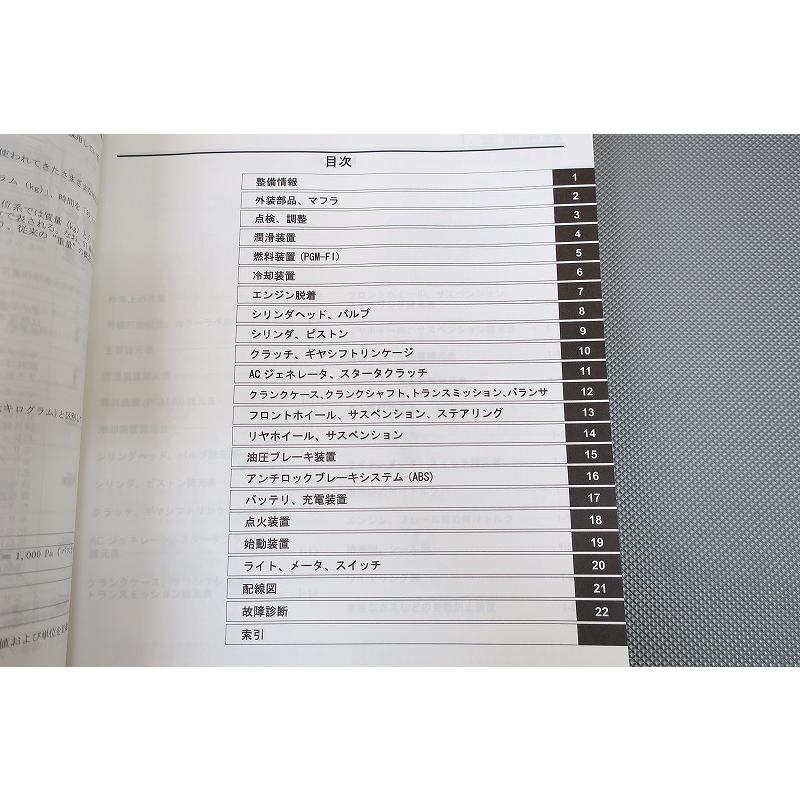 目次
整備情報 1
外装部品、マフラ 2
点検、調整 3
潤滑装置 4
燃料装置(PGM-FI) 5
冷却装置 6
エンジン脱着 7
シリンダヘッド、バルブ 8
シリンダ、ピストン 9
クラッチ、ギヤシフトリンケージ 10
ACジェネレータ、スタータクラッチ 11
クランクケース、クランクシャフト、トランスミッション、バランサ 12
フロントホイール、サスペンション、ステアリング 13
リヤホイール、サスペンション 14
油圧ブレーキ装置 15
アンチロックブレーキシステム(ABS) 16
バッテリ、充電装置 17
点火装置 18
始動装置 19
ライト、メータ、スイッチ 20
配線図 21
故障診断 22
索引